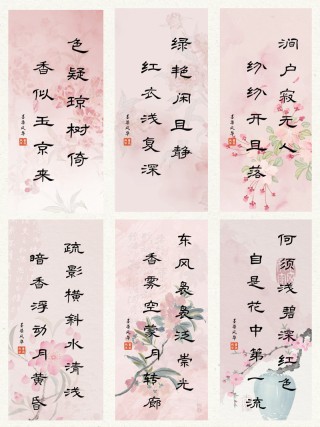 色疑琼树倚
香似玉京来
绿艳闲且静
红衣浅复深
涧户寂无人
纷纷开且落
疏影横斜水清浅
暗香浮动月黄昏
东风袅袅泛崇光
香雾空蒙月转廊
何须浅碧深红色
自是花中第一流